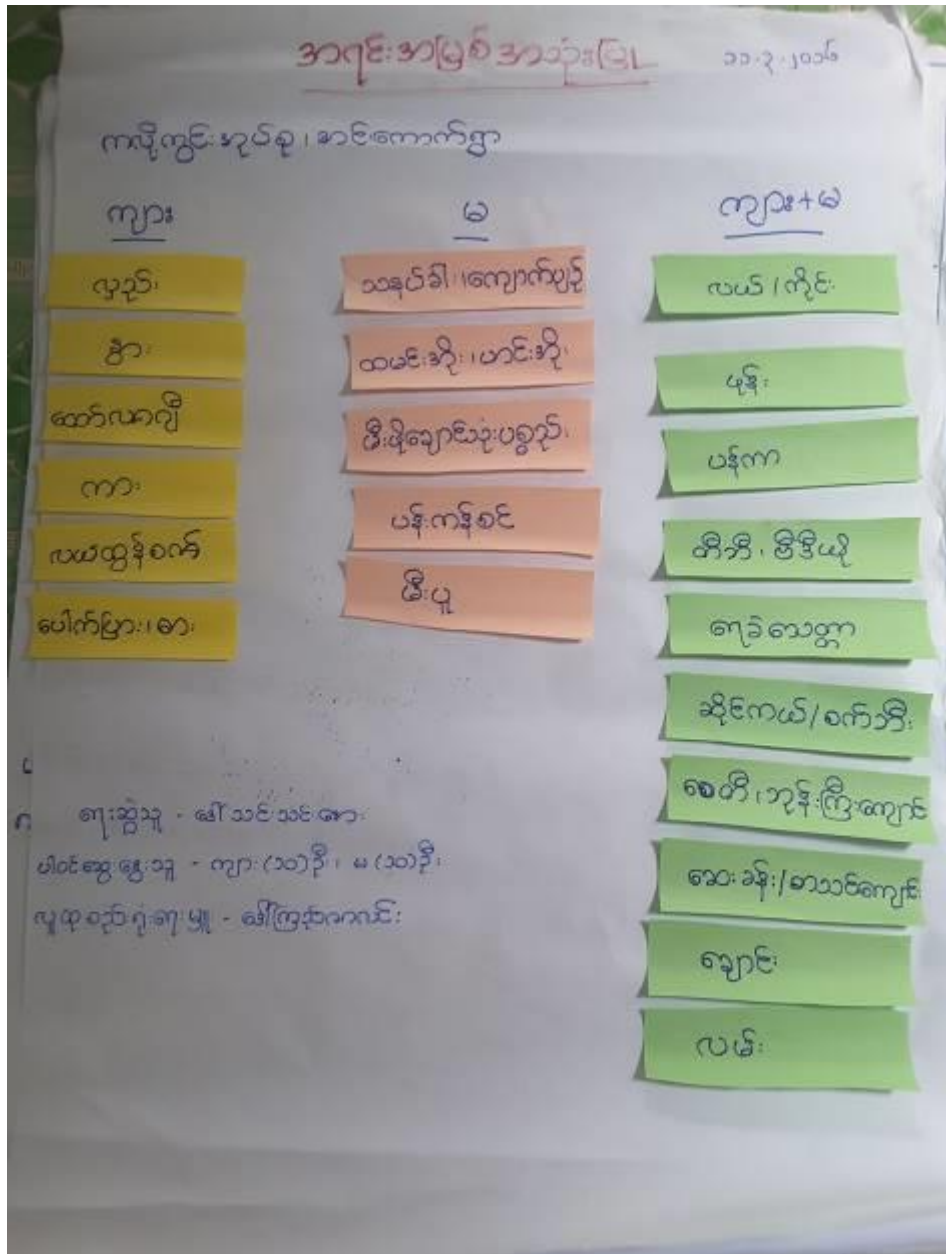 အရင်းအမြစ်အသုံးပြု ၁၁.၃.၂၀၁၆
ကလိုကွင်းအုပ်စု၊ ဆင်းကောက်ရွာ
ကျား
မ
ကျား+မ
လှည်း
နွား
ထော်လာဂျီ
ကား
လယ်ထွန်စက်
ပေါက်ပြား၊ ဓား
သနပ်ခါး၊ ကျောက်ပျဉ်
ထမင်းအိုး၊ ဟင်းအိုး
မီးဖိုချောင်သုံးပစ္စည်း
ပန်းကန်စင်
မီးပူ
လယ်/ကိုင်း
ဖုန်း
ပန်ကာ
တီဘီ၊ ဗီဒီယို
ရေခဲသေတ္တာ
ဆိုင်ကယ်/စက်ဘီး
စေတီ၊ ဘုန်းကြီးကျောင်း
ဆေးခန်း/စာသင်ကျောင်း
ချောင်း
လမ်း
ရေးဆွဲသူ - ဒေါ်သင်းသင်းဇော်
ပါဝင်ဆွေးနွေးသူ - ကျား(၁၀)ဦး၊ မ(၁၀)ဦး
လူထုစည်းရုံးရေးမှူး - ဒေါ်ကြည်